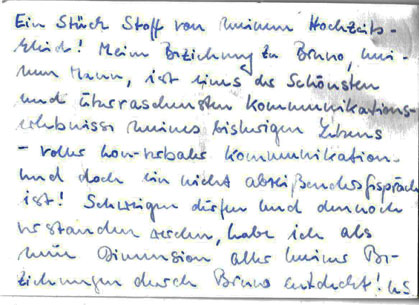 Ein Stück Stoff von meinem Hochzeits-
kleid! Meine Beziehung zu Bruno, mei-
nem Mann, ist eines der Schönsten
und überraschensten Kommunikations-
erlebnisse meines bisherigen Lebens
- voller non-verbaler Kommunikation
und doch ein nicht abreißendes Gespräch
ist! Schweigen dürfen und dennoch
verstanden werden, habe ich als
neue Dimension aller meiner Be-
ziehungen durch Bruno entdeckt!